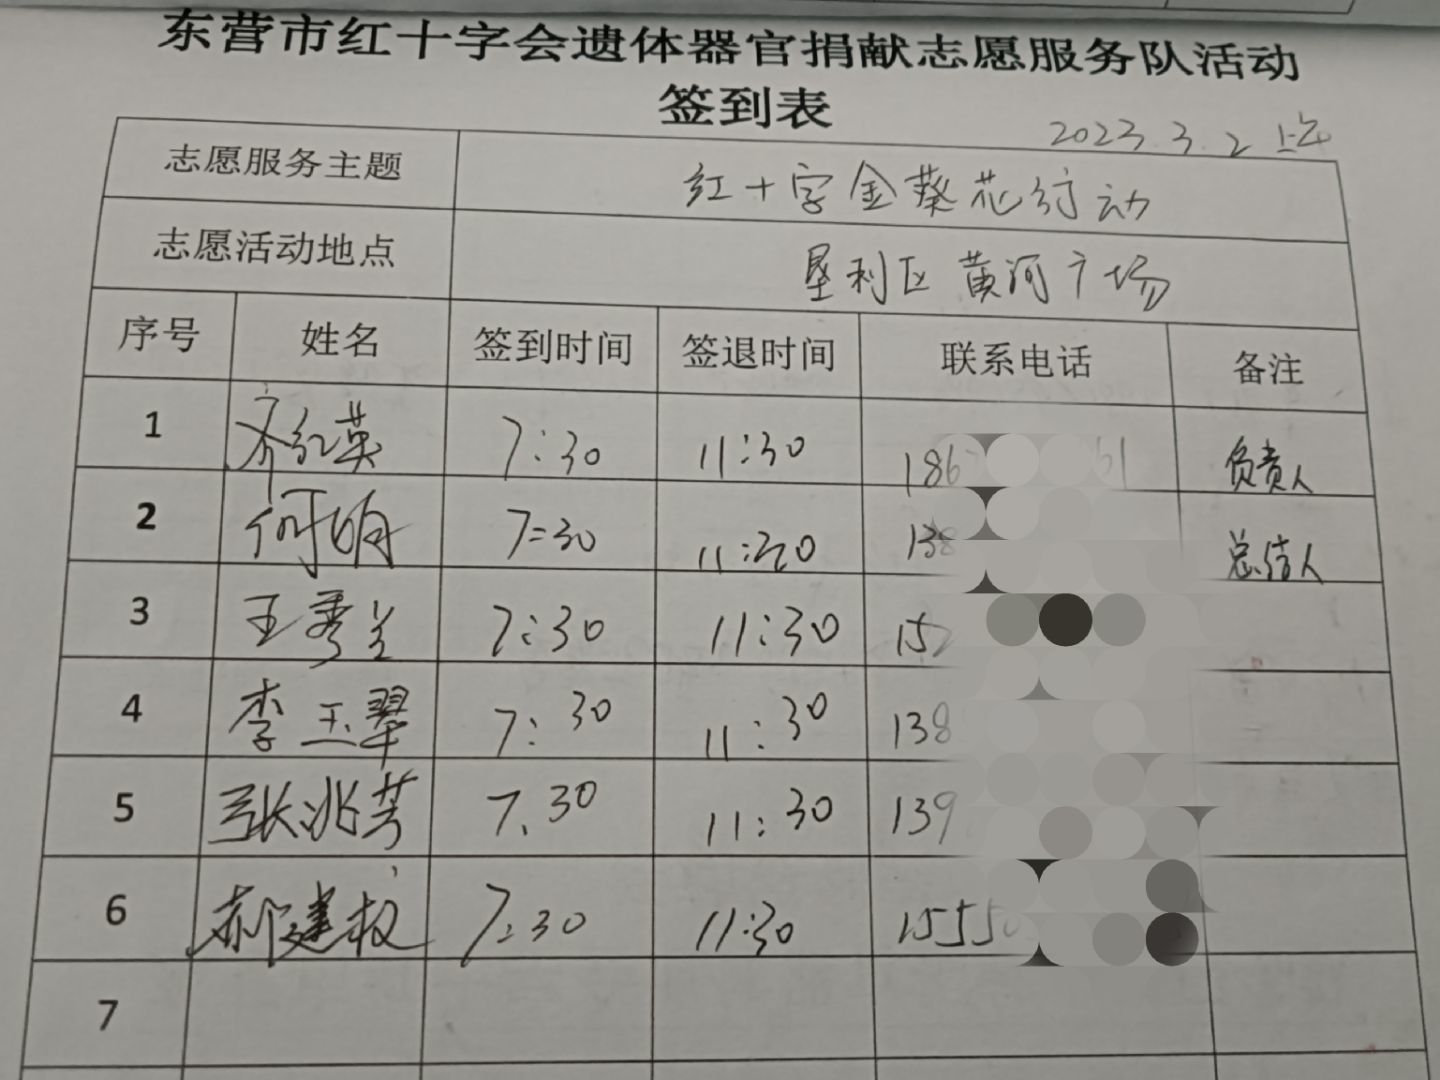 东营市红十字会遗体器官捐献志愿服务队活动
签到表
2023.3.2 上午
志愿服务主题 红十字金葵花行动
志愿活动地点 垦利区黄河广场
序号 姓名 签到时间 签退时间 联系电话 备注
1 齐红英 7:30 11:30 186 61 负责人
2 何明 7:30 11:30 138 总结人
3 王秀兰 7:30 11:30 152
4 李玉翠 7:30 11:30 138
5 张兆芳 7.30 11:30 139
6 郝建校 7:30 11:30 1555
7